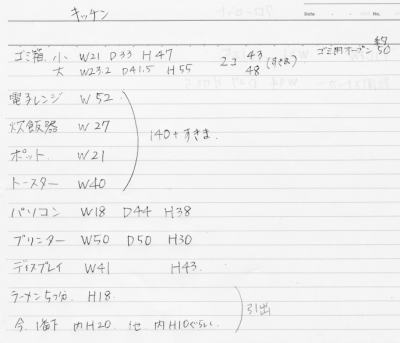 キッチン
Date No.
ゴミ箱 小 W21 D33 H47 2コ 43 (すきま) ゴミ用オープン 50
大 W23.2 D41.5 H55 48
電子レンジ W52
炊飯器 W27
140+すきま
ポット W21
トースター W40
パソコン W18 D44 H38
プリンター W50 D50 H30
ディスプレイ W41 H43.
ラーメン5つ分. H18.
引出
今. 1番下 内H20. 他 内H10ぐらい.